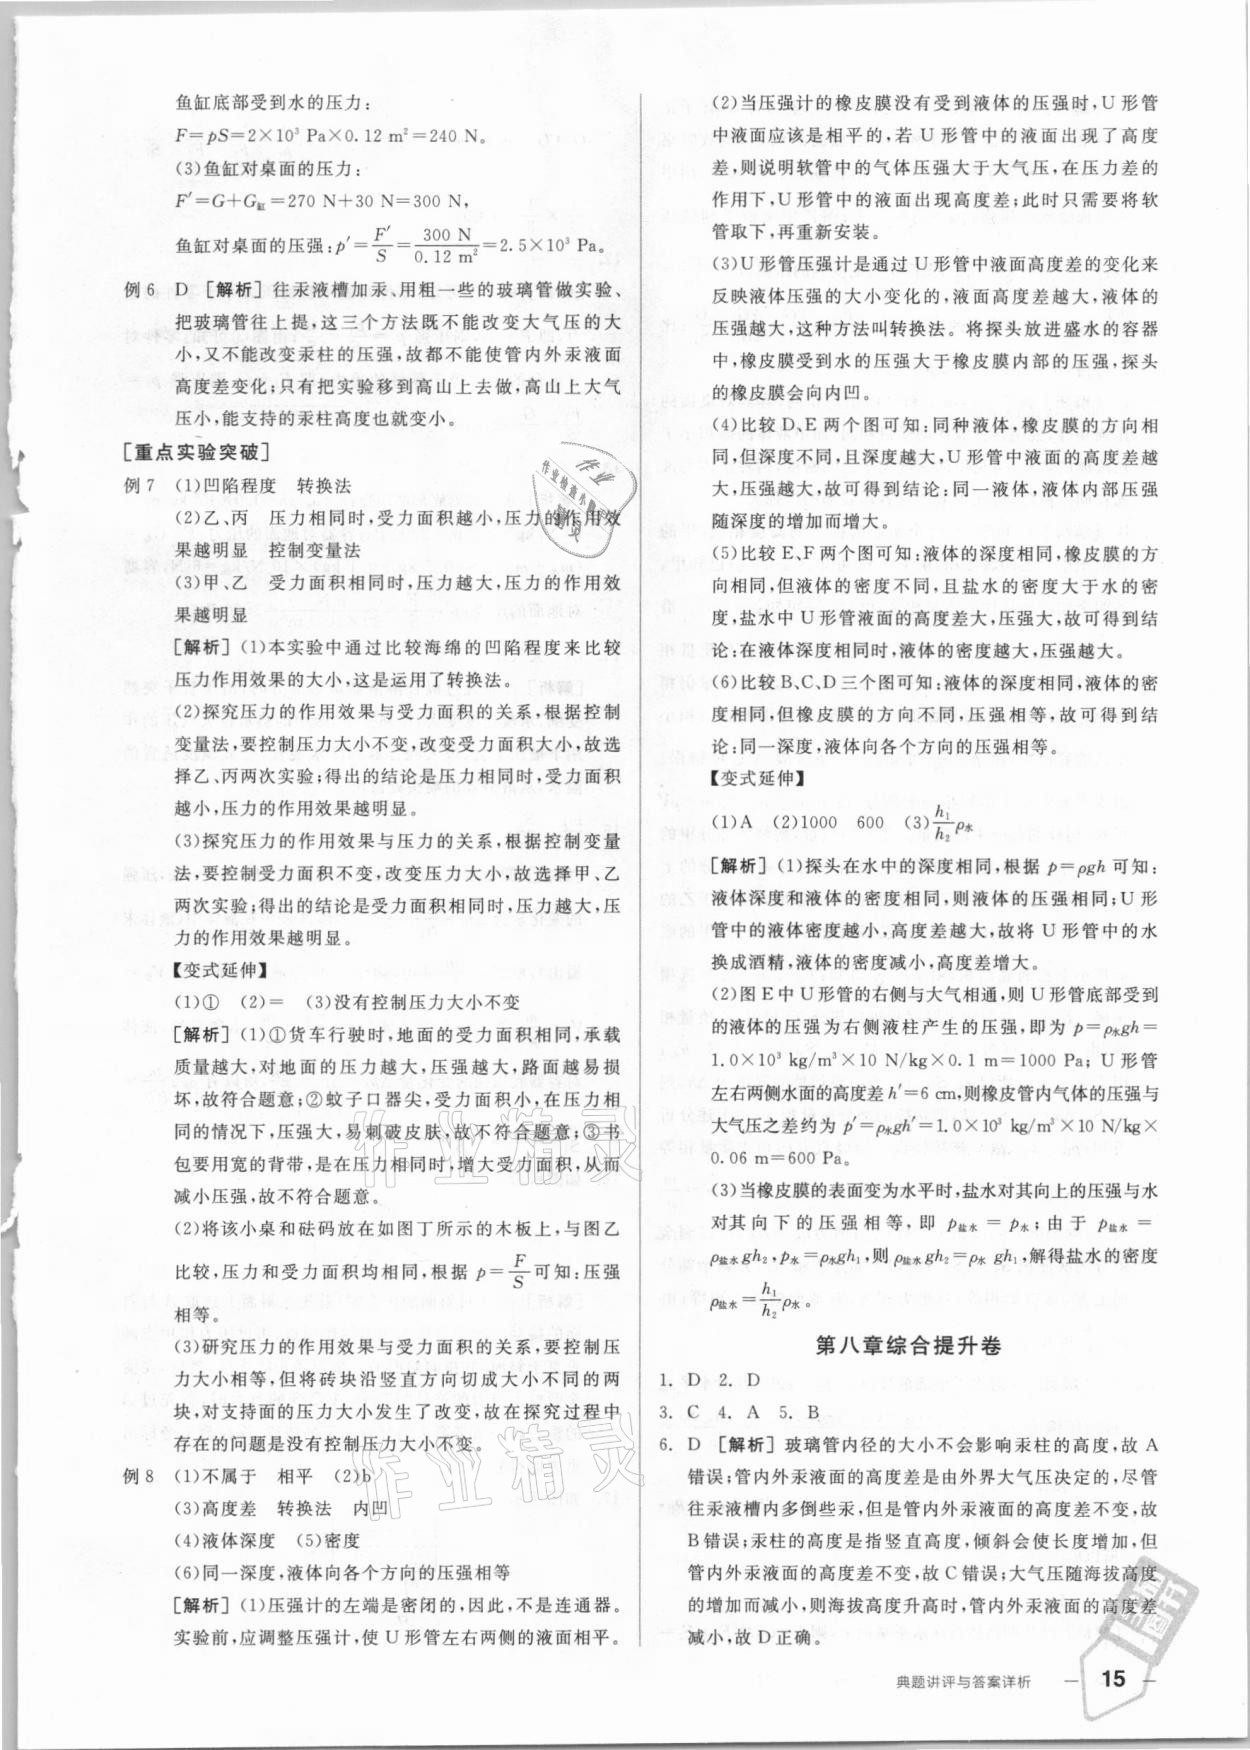 鱼缸底部受到水的压力:
F=pS=2×10³ Pa×0.12 m²=240 N。
(3)鱼缸对桌面的压力:
F′=G+G缸=270 N+30 N=300 N,
鱼缸对桌面的压强:p′=F′/S=300 N/0.12 m²=2.5×10³ Pa。
例6 D [解析]往汞液槽加汞、用粗一些的玻璃管做实验、
把玻璃管往上提,这三个方法既不能改变大气压的大
小,又不能改变汞柱的压强,故都不能使管内外汞液面
高度差变化;只有把实验移到高山上去做,高山上大气
压小,能支持的汞柱高度也就变小。
[重点实验突破]
例7 (1)凹陷程度 转换法
(2)乙、丙 压力相同时,受力面积越小,压力的作用效
果越明显 控制变量法
(3)甲、乙 受力面积相同时,压力越大,压力的作用效
果越明显
[解析](1)本实验中通过比较海绵的凹陷程度来比较
压力作用效果的大小,这是运用了转换法。
(2)探究压力的作用效果与受力面积的关系,根据控制
变量法,要控制压力大小不变,改变受力面积大小,故选
择乙、丙两次实验;得出的结论是压力相同时,受力面积
越小,压力的作用效果越明显。
(3)探究压力的作用效果与压力的关系,根据控制变量
法,要控制受力面积不变,改变压力大小,故选择甲、乙
两次实验;得出的结论是受力面积相同时,压力越大,压
力的作用效果越明显。
【变式延伸】
(1)① (2)= (3)没有控制压力大小不变
[解析](1)①货车行驶时,地面的受力面积相同,承载
质量越大,对地面的压力越大,压强越大,路面越易损
坏,故符合题意;②蚊子口器尖,受力面积小,在压力相
同的情况下,压强大,易刺破皮肤,故不符合题意;③书
包要用宽的背带,是在压力相同时,增大受力面积,从而
减小压强,故不符合题意。
(2)将该小桌和砝码放在如图丁所示的木板上,与图乙
比较,压力和受力面积均相同,根据 p=F/S 可知:压强
相等。
(3)研究压力的作用效果与受力面积的关系,要控制压
力大小相等,但将砖块沿竖直方向切成大小不同的两
块,对支持面的压力大小发生了改变,故在探究过程中
存在的问题是没有控制压力大小不变。
例8 (1)不属于 相平 (2)b
(3)高度差 转换法 内凹
(4)液体深度 (5)密度
(6)同一深度,液体向各个方向的压强相等
[解析](1)压强计的左端是密闭的,因此,不是连通器。
实验前,应调整压强计,使 U 形管左右两侧的液面相平。
(2)当压强计的橡皮膜没有受到液体的压强时,U 形管
中液面应该是相平的,若 U 形管中的液面出现了高度
差,则说明软管中的气体压强大于大气压,在压力差的
作用下,U 形管中的液面出现高度差;此时只需要将软
管取下,再重新安装。
(3)U 形管压强计是通过 U 形管中液面高度差的变化来
反映液体压强的大小变化的,液面高度差越大,液体的
压强越大,这种方法叫转换法。将探头放进盛水的容器
中,橡皮膜受到水的压强大于橡皮膜内部的压强,探头
的橡皮膜会向内凹。
(4)比较 D、E 两个图可知:同种液体,橡皮膜的方向相
同,但深度不同,且深度越大,U 形管中液面的高度差越
大,压强越大,故可得到结论:同一液体,液体内部压强
随深度的增加而增大。
(5)比较 E、F 两个图可知:液体的深度相同,橡皮膜的方
向相同,但液体的密度不同,且盐水的密度大于水的密
度,盐水中 U 形管液面的高度差大,压强大,故可得到结
论:在液体深度相同时,液体的密度越大,压强越大。
(6)比较 B、C、D 三个图可知:液体的深度相同,液体的密
度相同,但橡皮膜的方向不同,压强相等,故可得到结
论:同一深度,液体向各个方向的压强相等。
【变式延伸】
(1)A (2)1000 600 (3)h₁/h₂ ρ水
[解析](1)探头在水中的深度相同,根据 p=ρgh 可知:
液体深度和液体的密度相同,则液体的压强相同;U 形
管中的液体密度越小,高度差越大,故将 U 形管中的水
换成酒精,液体的密度减小,高度差增大。
(2)图 E 中 U 形管的右侧与大气相通,则 U 形管底部受到
的液体的压强为右侧液柱产生的压强,即为 p=ρ水gh=
1.0×10³ kg/m³×10 N/kg×0.1 m=1000 Pa;U 形管
左右两侧水面的高度差 h′=6 cm,则橡皮管内气体的压强与
大气压之差约为 p′=ρ水gh′=1.0×10³ kg/m³×10 N/kg×
0.06 m=600 Pa。
(3)当橡皮膜的表面变为水平时,盐水对其向上的压强与水
对其向下的压强相等,即 p盐水=p水;由于 p盐水=
ρ盐水gh₂,p水=ρ水gh₁,则 ρ盐水gh₂=ρ水gh₁,解得盐水的密度
ρ盐水=h₁/h₂ ρ水。
第八章综合提升卷
1. D 2. D
3. C 4. A 5. B
6. D [解析]玻璃管内径的大小不会影响汞柱的高度,故 A
错误;管内外汞液面的高度差是由外界大气压决定的,尽管
往汞液槽内多倒些汞,但是管内外汞液面的高度差不变,故
B 错误;汞柱的高度是指竖直高度,倾斜会使长度增加,但
管内外汞液面的高度差不变,故 C 错误;大气压随海拔高度
的增加而减小,则海拔高度升高时,管内外汞液面的高度差
减小,故 D 正确。
典题讲评与答案详析 — 15 —
作业精灵
作业精灵
作业
作业检查小
精灵